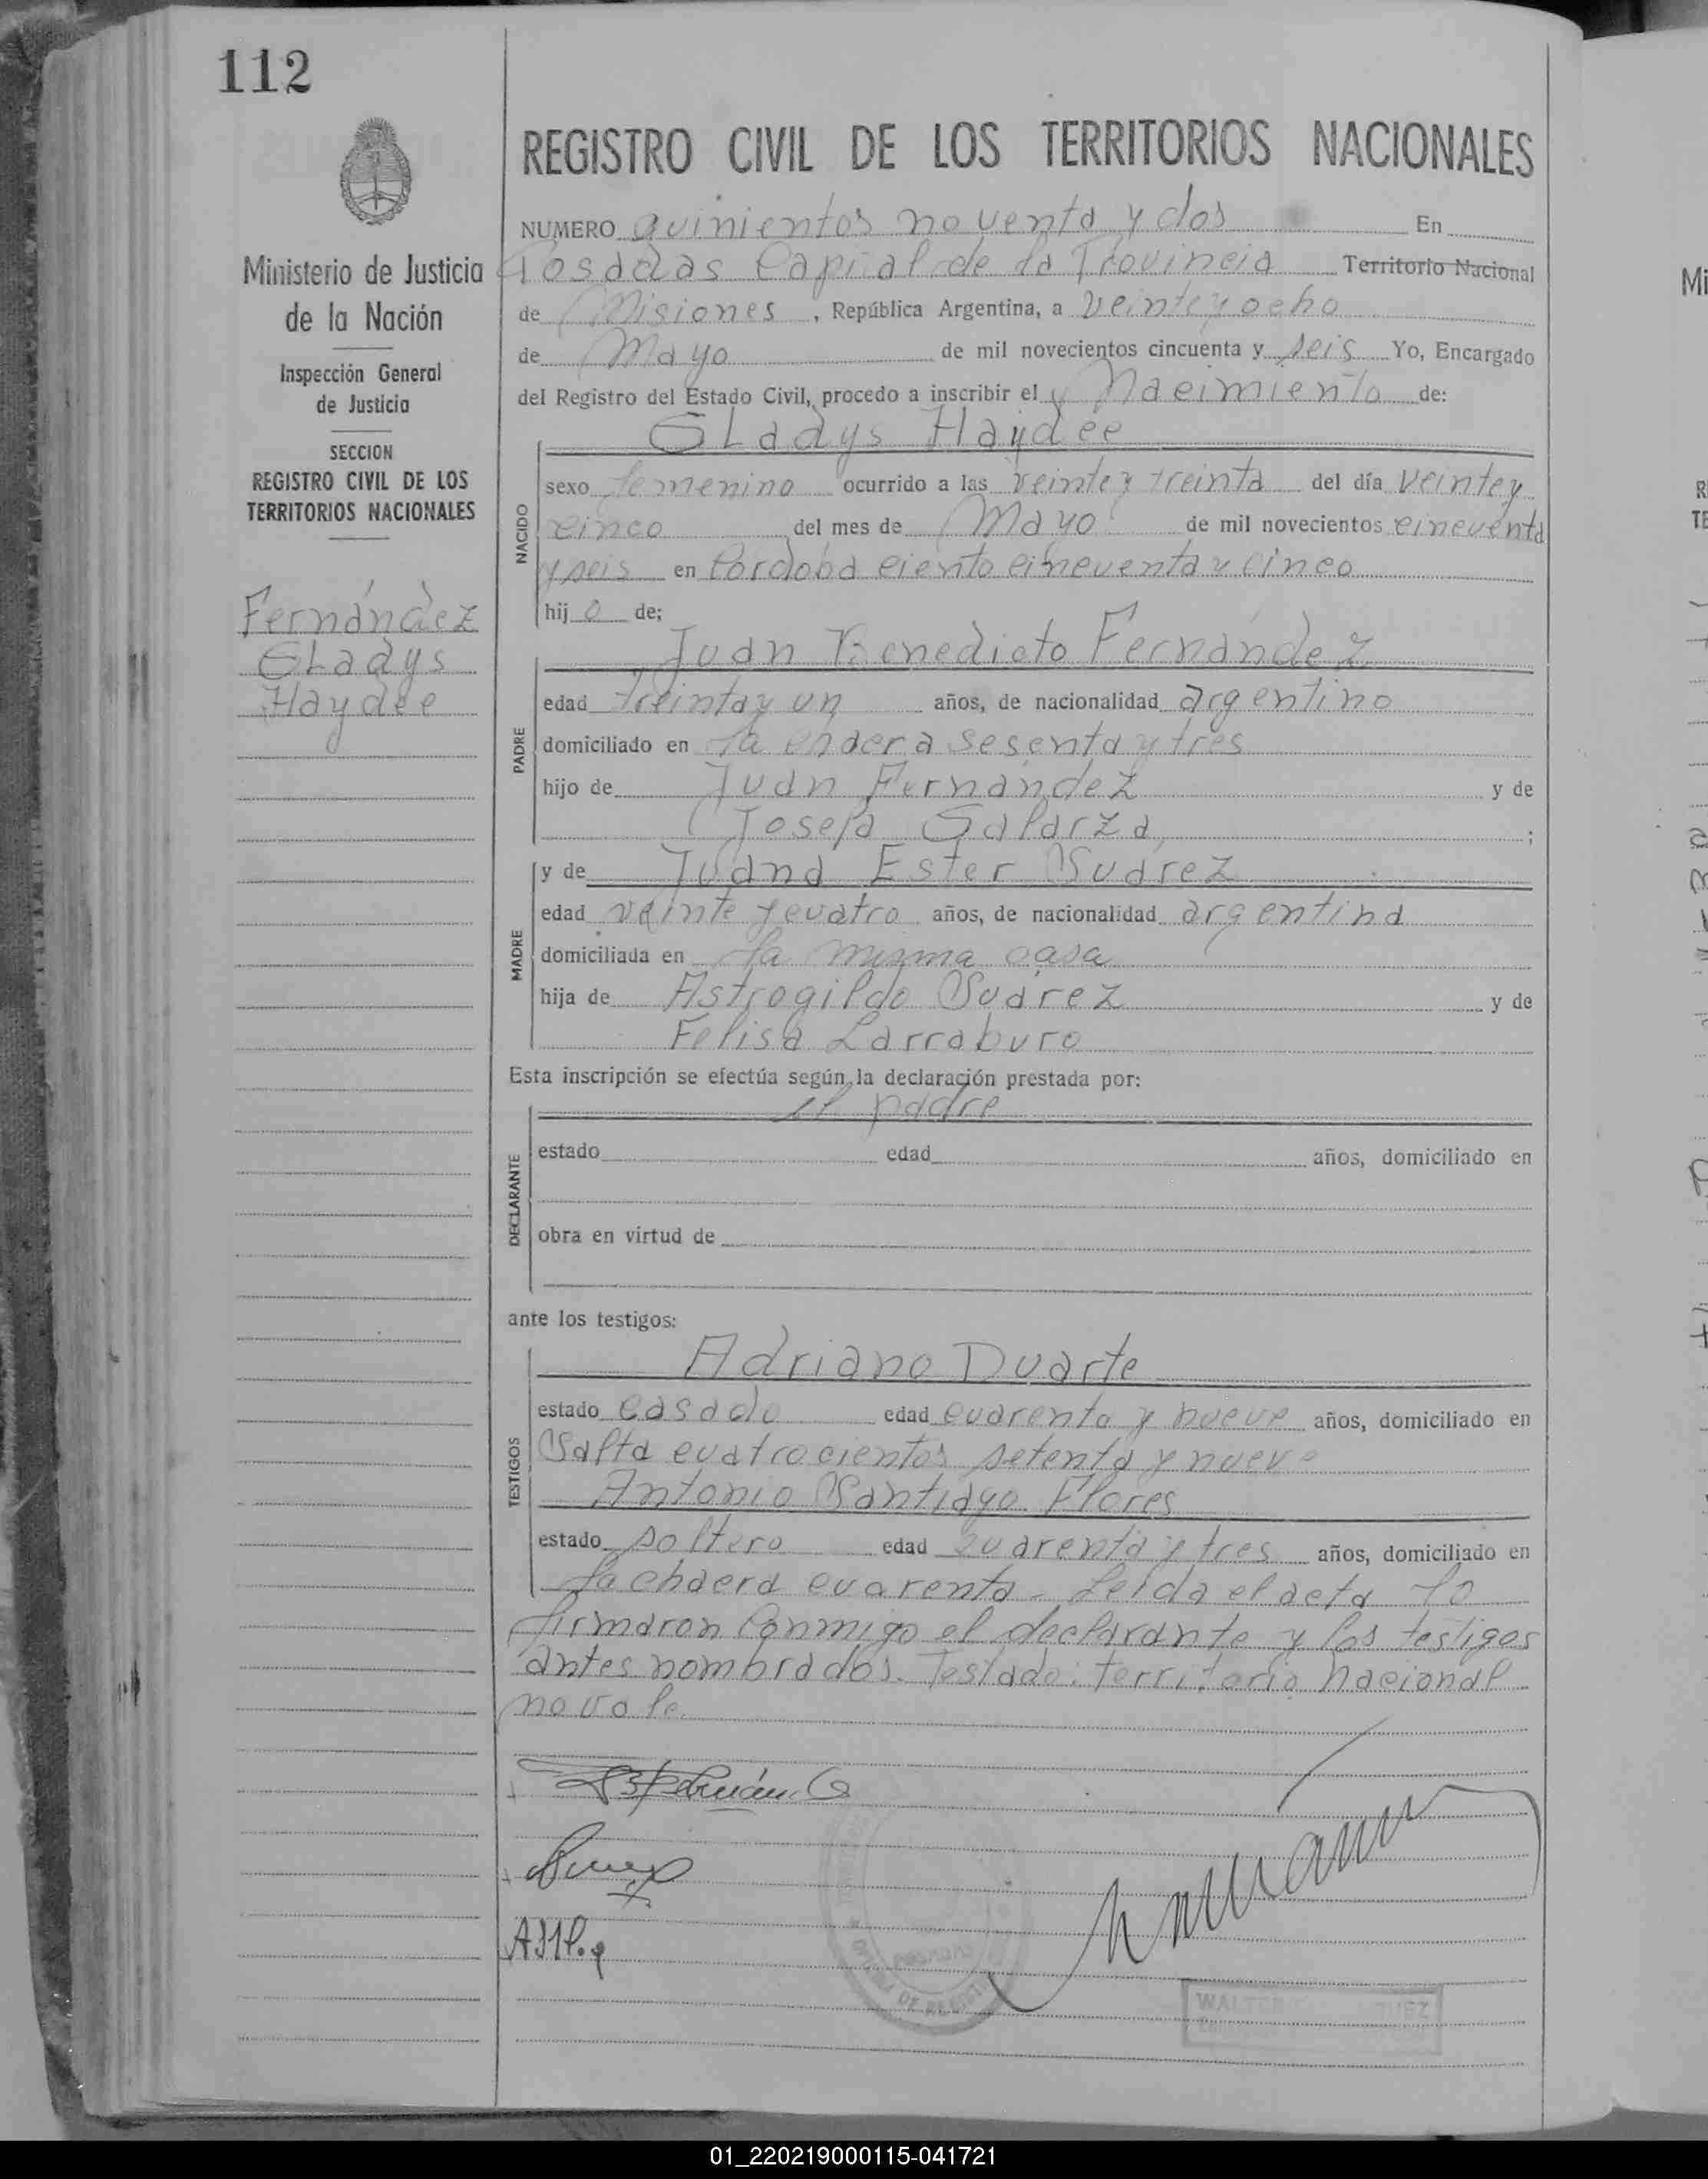 112
REGISTRO CIVIL DE LOS TERRITORIOS NACIONALES
Ministerio de Justicia
de la Nación
Inspección General
de Justicia
SECCION
REGISTRO CIVIL DE LOS
TERRITORIOS NACIONALES
Fernández
Gladys
Haydée
NUMERO quinientos noventa y dos En
Posadas Capital de la Provincia Territorio Nacional
de Misiones, República Argentina, a veinte y ocho
de Mayo de mil novecientos cincuenta y seis Yo, Encargado
del Registro del Estado Civil, procedo a inscribir el Nacimiento de:
Gladys Haydée
NACIDO
sexo femenino ocurrido a las veinte y treinta del día veinte y
cinco del mes de Mayo de mil novecientos cincuenta
y seis en Córdoba ciento cincuenta y cinco
hij o de;
Juan Benedicto Fernández
PADRE
edad treinta y un años, de nacionalidad argentino
domiciliado en la chacra sesenta y tres
hijo de Juan Fernández y de
Josefa Galarza ;
y de Juana Ester Suárez
MADRE
edad veinte y cuatro años, de nacionalidad argentina
domiciliada en la misma casa
hija de Astrogildo Suárez y de
Felisa Larraburo
Esta inscripción se efectúa según la declaración prestada por:
el padre
DECLARANTE
estado edad años, domiciliado en
obra en virtud de
ante los testigos:
Adriano Duarte
TESTIGOS
estado casado edad cuarenta y nueve años, domiciliado en
Salta cuatrocientos setenta y nueve
Antonio Santiago Flores
estado soltero edad cuarenta y tres años, domiciliado en
la chacra cuarenta - Leída el acta la
firmaron conmigo el declarante y los testigos
antes nombrados. Testado: territorio nacional
no vale.
WALTER
01_220219000115-041721